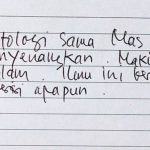 tologi sama Mas
nyenangkan. Maki
Ilmu ini ber
apapun.